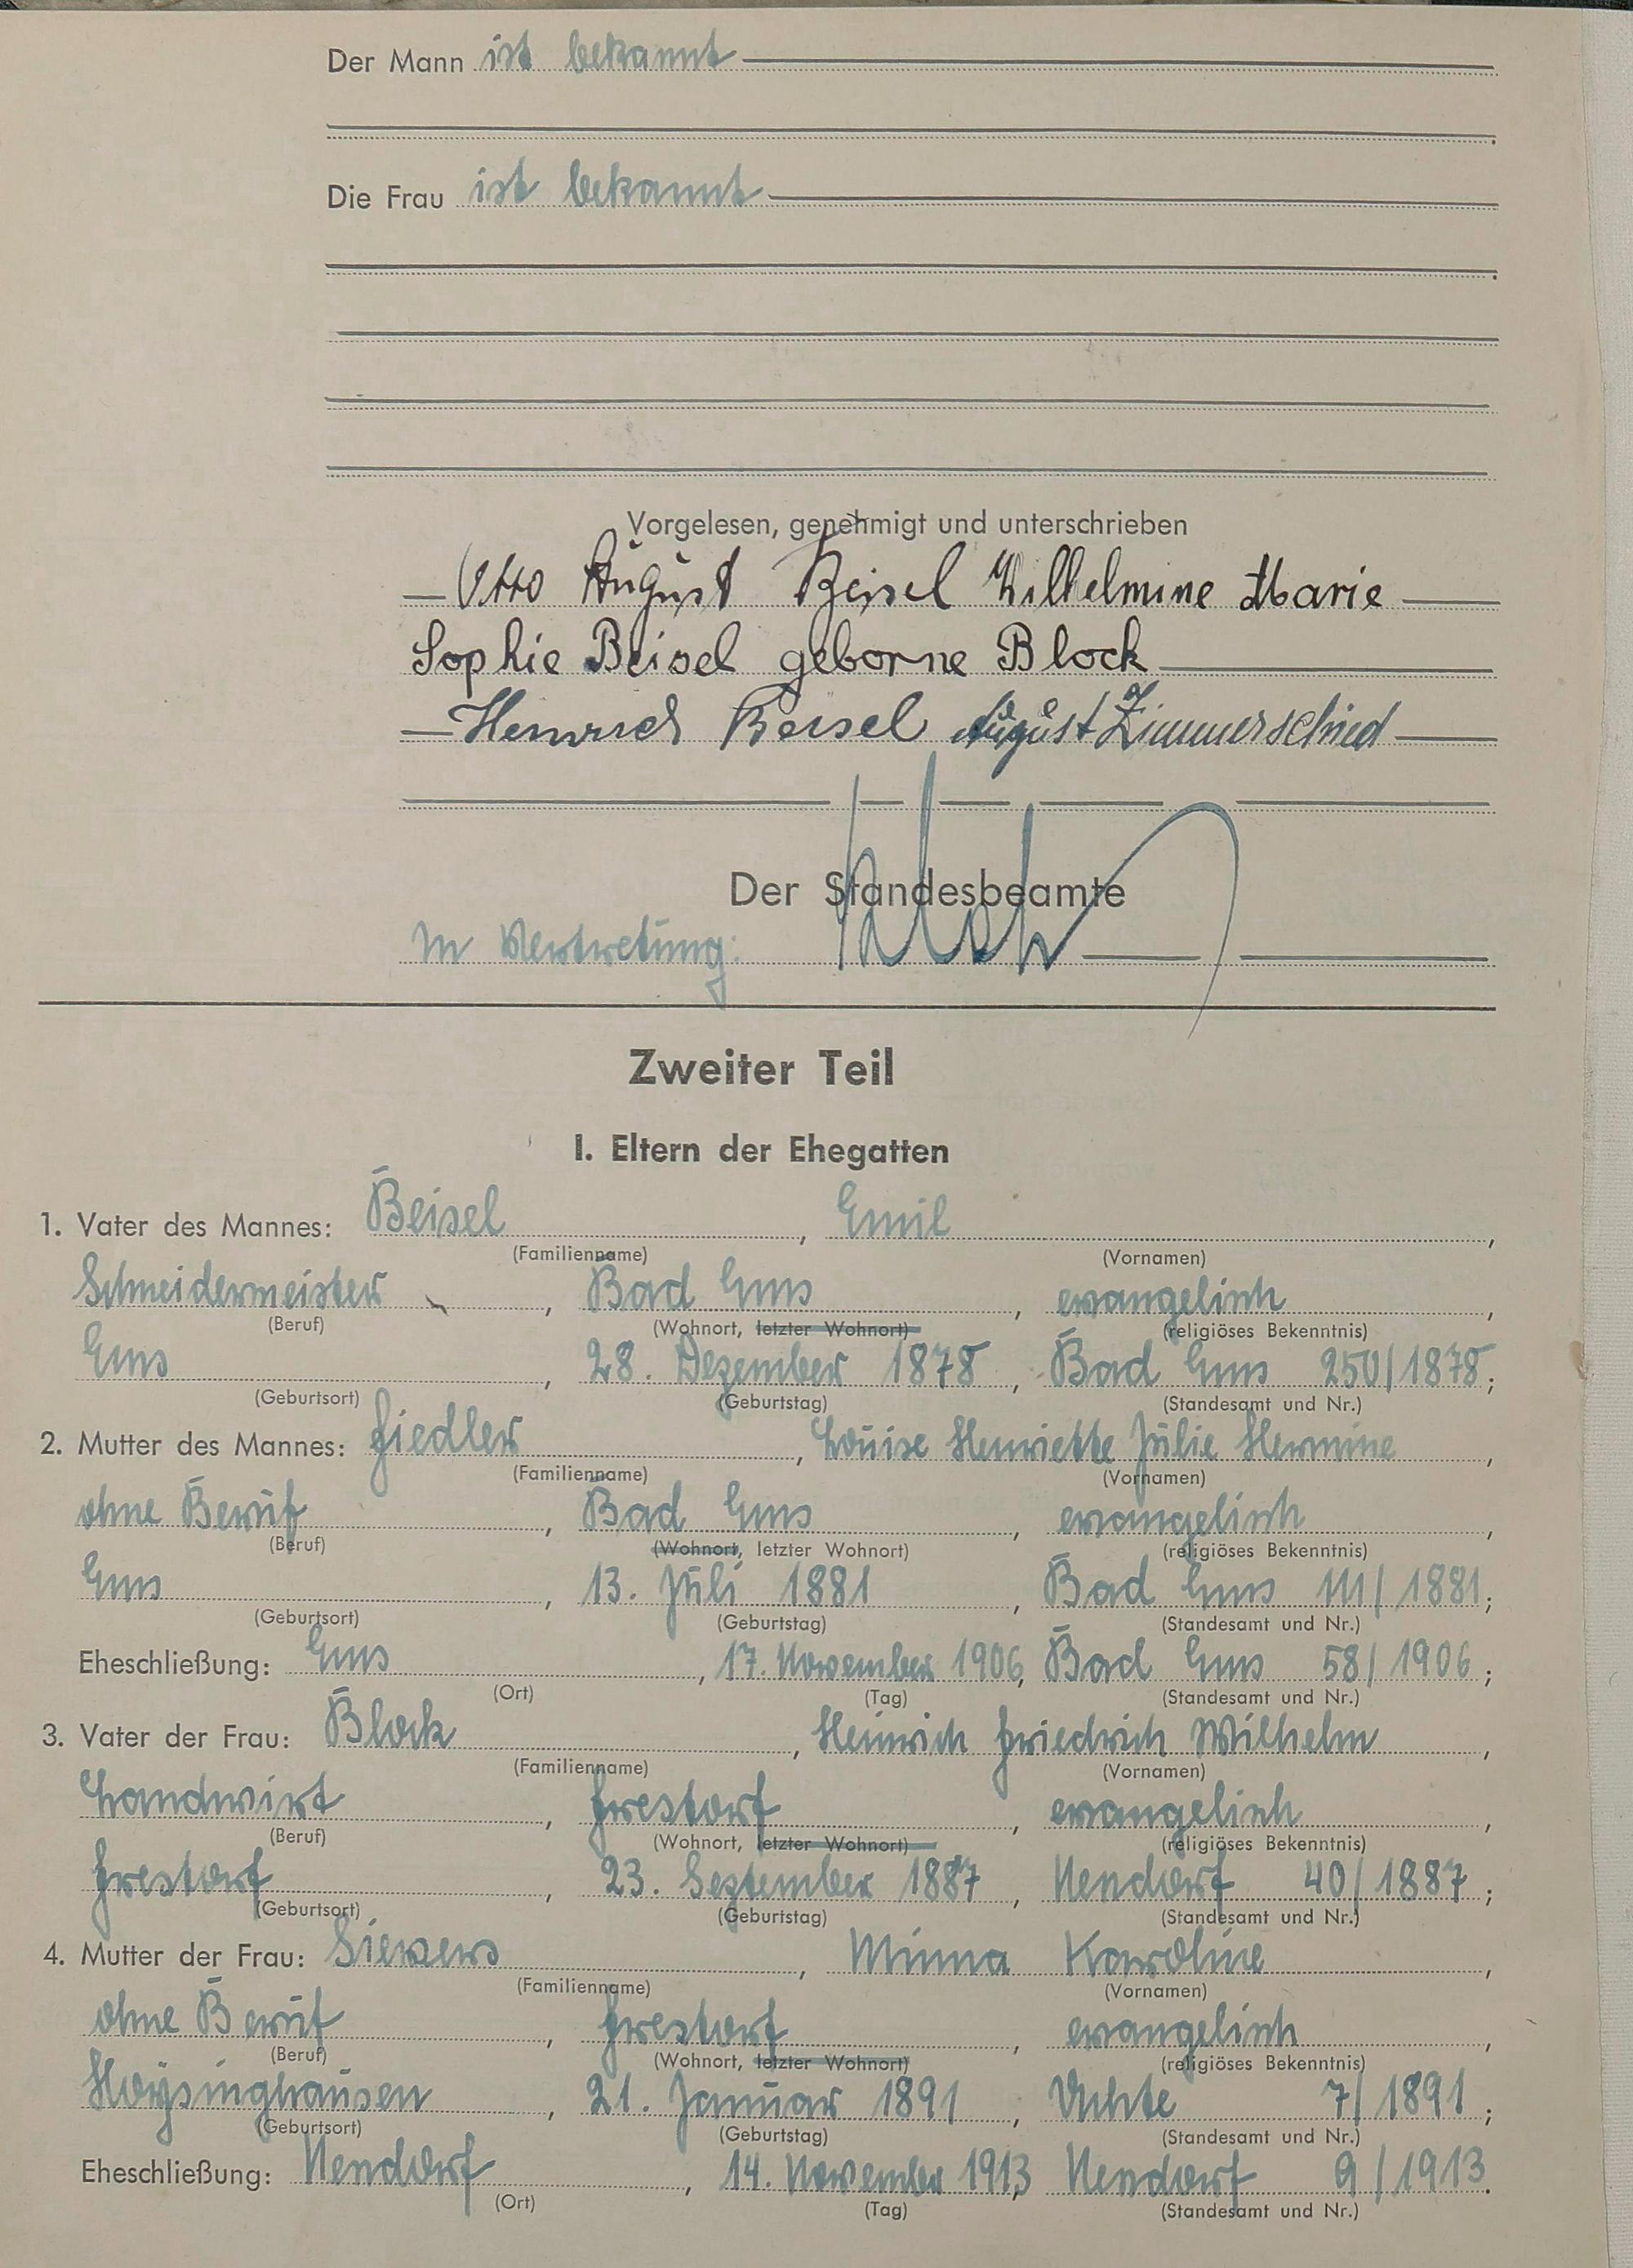 Der Mann ist bekannt
Die Frau ist bekannt
Vorgelesen, genehmigt und unterschrieben
Otto August Beisel Wilhelmine Marie
Sophie Beisel geborne Block
Heinrich Beisel August Zimmerschied
Der Standesbeamte
In Vertretung:
Zweiter Teil
I. Eltern der Ehegatten
1. Vater des Mannes: Beisel, Emil,
(Familienname) (Vornamen)
Schneidermeister, Bad Ems, evangelisch,
(Beruf) (Wohnort, letzter Wohnort) (religiöses Bekenntnis)
Ems, 28. Dezember 1878, Bad Ems 250/1878;
(Geburtsort) (Geburtstag) (Standesamt und Nr.)
2. Mutter des Mannes: Fiedler, Louise Henriette Julie Hermine,
(Familienname) (Vornamen)
ohne Beruf, Bad Ems, evangelisch,
(Beruf) (Wohnort, letzter Wohnort) (religiöses Bekenntnis)
Ems, 13. Juli 1881, Bad Ems 111/1881;
(Geburtsort) (Geburtstag) (Standesamt und Nr.)
Eheschließung: Ems, 17. November 1906, Bad Ems 58/1906;
(Ort) (Tag) (Standesamt und Nr.)
3. Vater der Frau: Block, Heinrich Friedrich Wilhelm,
(Familienname) (Vornamen)
Landwirt, Frestorf, evangelisch,
(Beruf) (Wohnort, letzter Wohnort) (religiöses Bekenntnis)
Frestorf, 23. September 1887, Nendorf 40/1887;
(Geburtsort) (Geburtstag) (Standesamt und Nr.)
4. Mutter der Frau: Sievers, Minna Karoline,
(Familienname) (Vornamen)
ohne Beruf, Frestorf, evangelisch,
(Beruf) (Wohnort, letzter Wohnort) (religiöses Bekenntnis)
Hoysinghausen, 21. Januar 1891, Uchte 7/1891;
(Geburtsort) (Geburtstag) (Standesamt und Nr.)
Eheschließung: Nendorf, 14. November 1913, Nendorf 9/1913.
(Ort) (Tag) (Standesamt und Nr.)